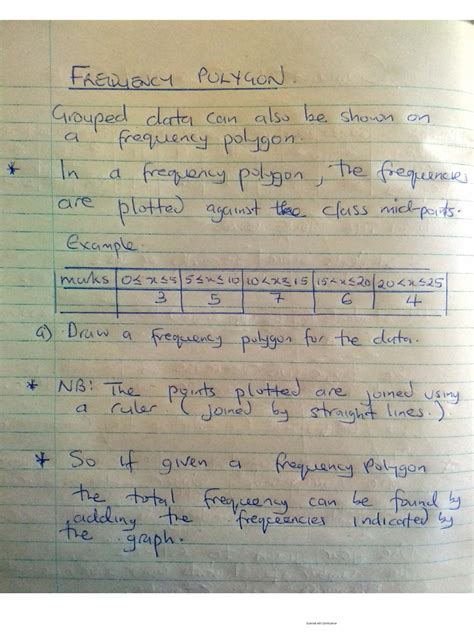 FREQUENCY POLYGON.
Grouped data can also be shown on
a frequency polygon.
* In a frequency polygon, the frequencies
are plotted against the class mid-points.
Example.
marks 0≤x≤5 5≤x≤10 10<x≤15 15<x≤20 20<x≤25
3 5 7 6 4
a) Draw a frequency polygon for the data.
* NB: The points plotted are joined using
a ruler (joined by straight lines.).
* So if given a frequency polygon
the total frequency can be found by
adding the frequencies indicated by
the graph.
Scanned with CamScanner